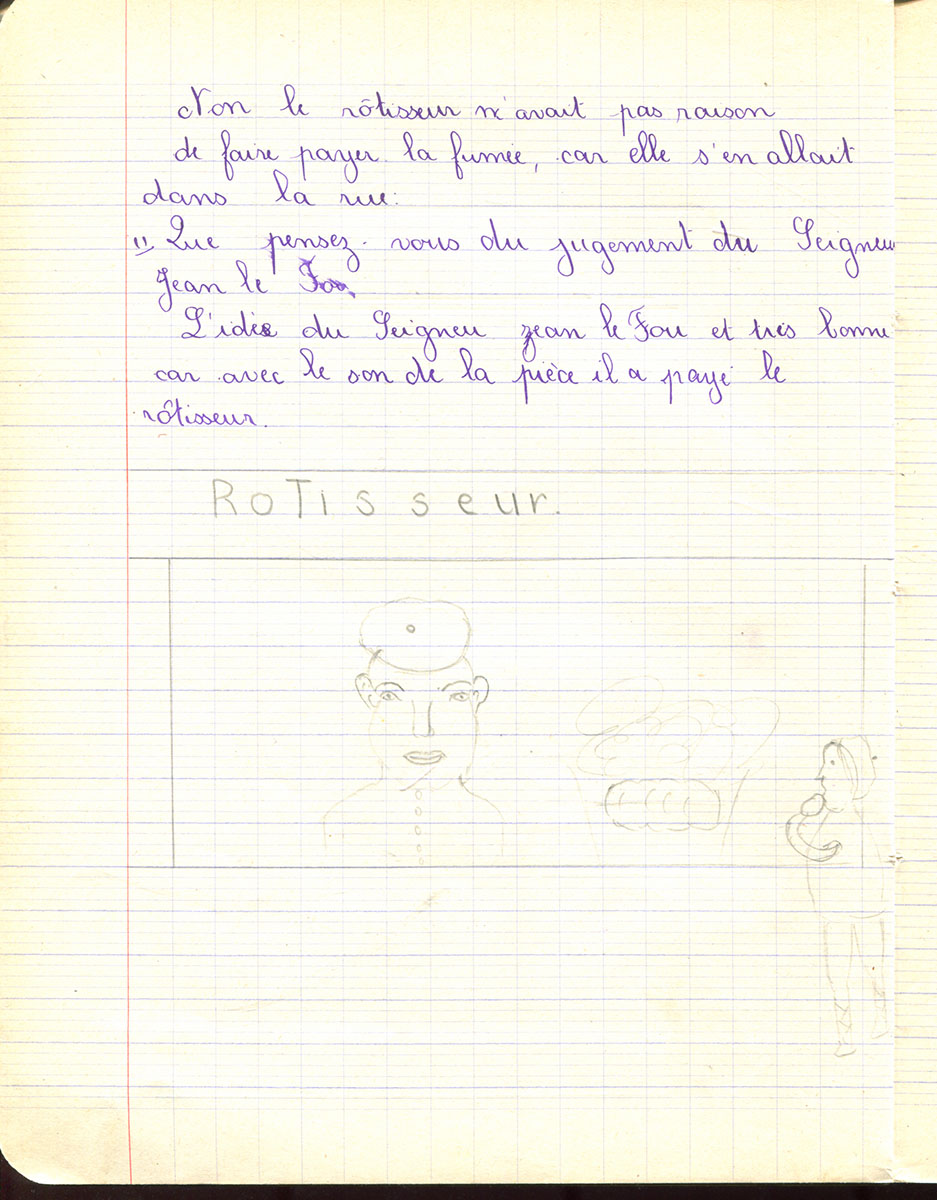 Non le rôtisseur n'avait pas raison
de faire payer la fumée, car elle s'en allait
dans la rue.
" Que pensez-vous du jugement du Seigneur
Jean le Fou.
L'idée du Seigneu Jean le Fou et très bonne
car avec le son de la pièce il a payé le
rôtisseur.
RoTisseur.